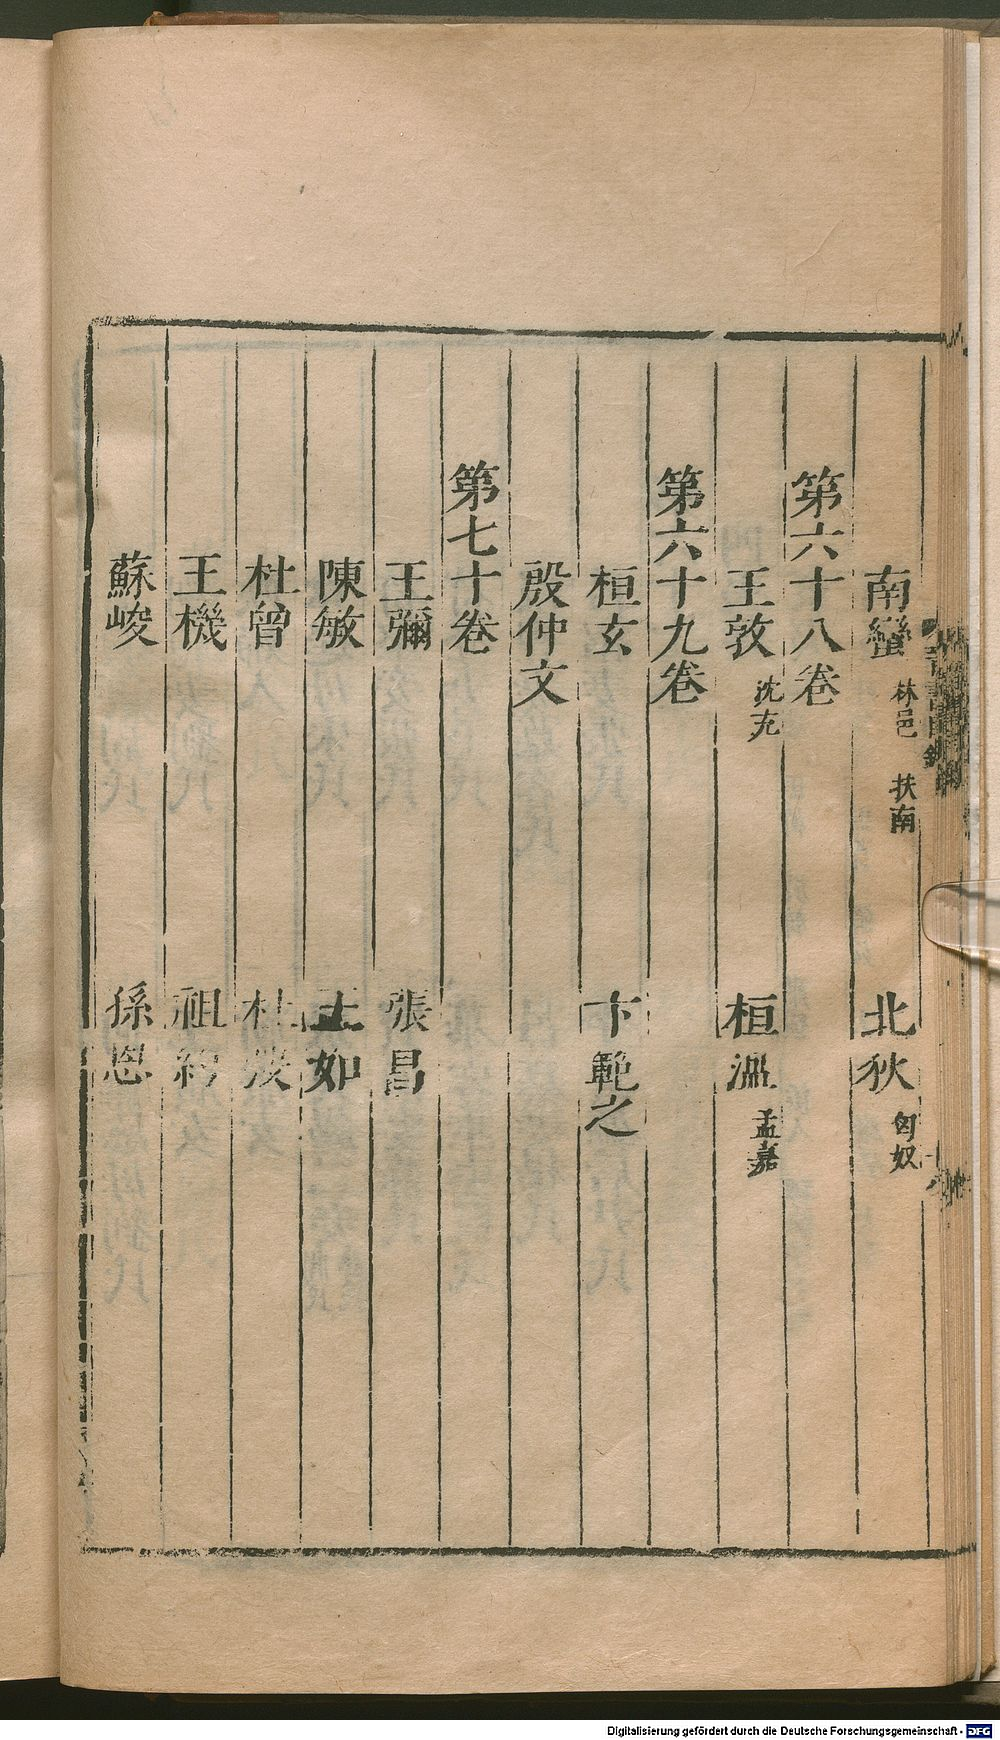 南蠻 林邑 扶南 北狄 匈奴
第六十八卷
王敦 沈充 桓溫 孟嘉
第六十九卷
桓玄 卞範之
殷仲文
第七十卷
王彌 張昌
陳敏 王如
杜曾 杜弢
王機 祖約
蘇峻 孫恩
Digitalisierung gefördert durch die Deutsche Forschungsgemeinschaft - DFG